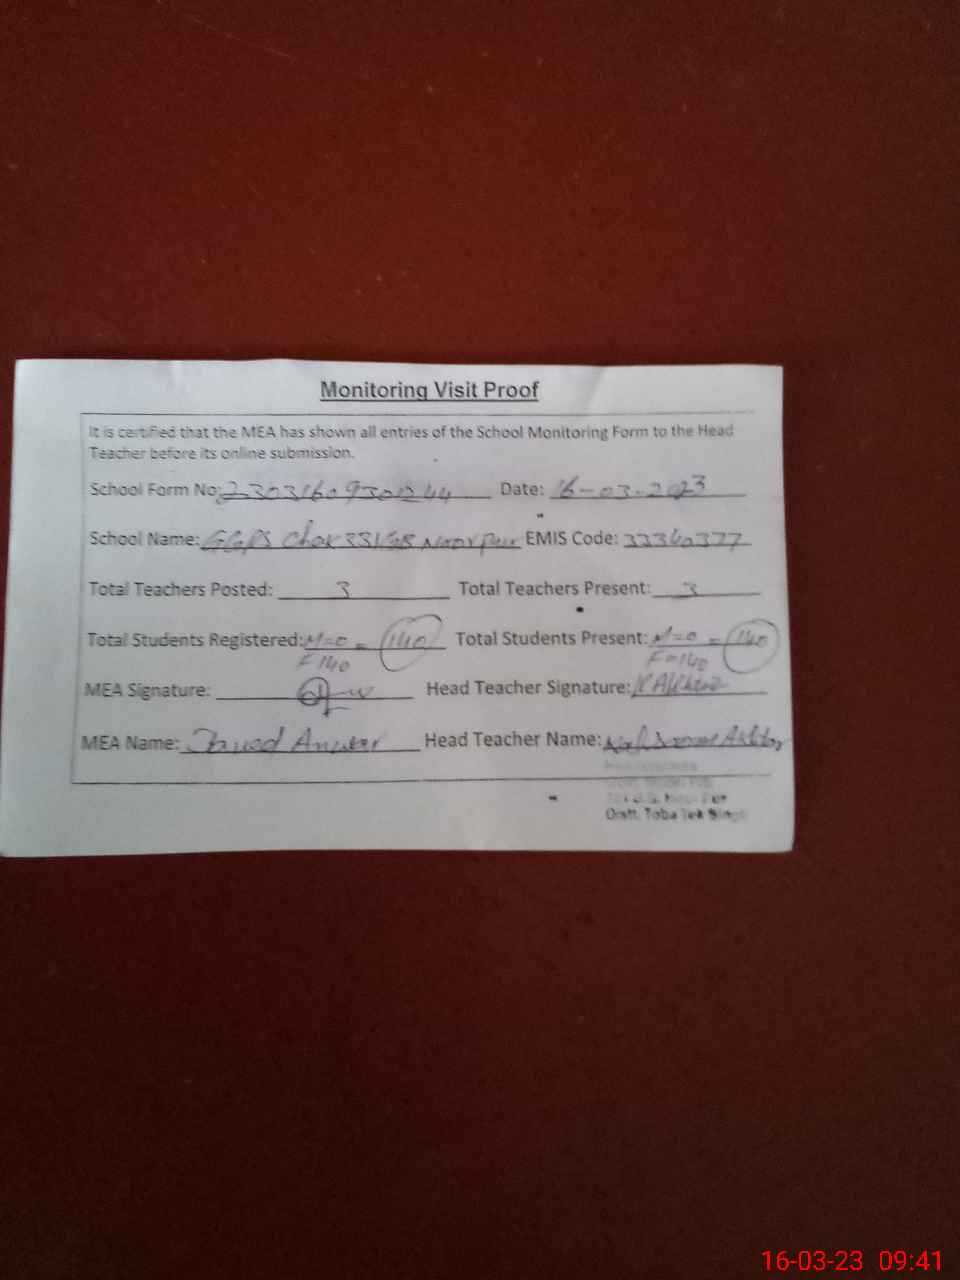 Monitoring Visit Proof
It is certified that the MEA has shown all entries of the School Monitoring Form to the Head
Teacher before its online submission.
School Form No: Date: 16-03-2023
School Name: GGPS Chak 331GB Noor Pur EMIS Code: 33360377
Total Teachers Posted: 3 Total Teachers Present: 3
Total Students Registered: M=0 = 140 Total Students Present: M=0 = 140
F 140 F=140
MEA Signature: Head Teacher Signature: K Akhtar
MEA Name: Javed Anwar Head Teacher Name: Akhtar
Distt. Toba Tek Singh
16-03-23 09:41